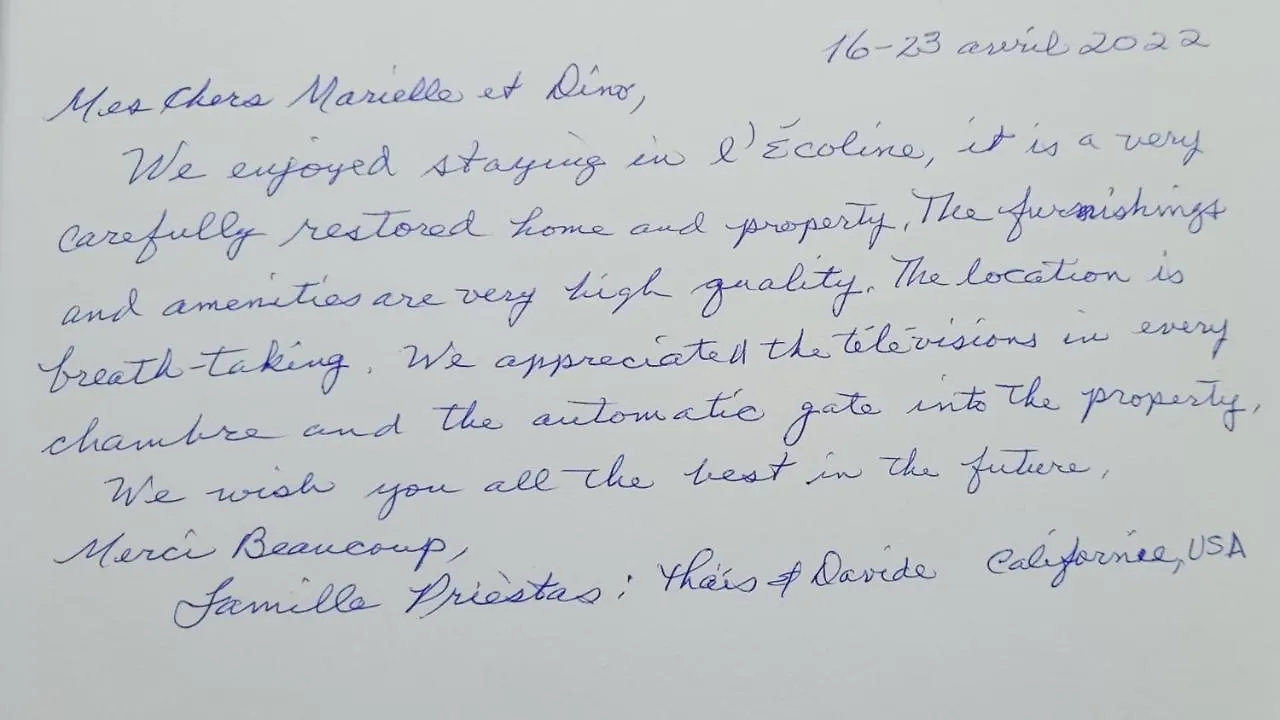 16-23 avril 2022
Mes Chers Marielle et Dino,
We enjoyed staying in l'Écoline, it is a very
carefully restored home and property. The furnishings
and amenities are very high quality. The location is
breath-taking. We appreciated the télévisions in every
chambre and the automatic gate into the property.
We wish you all the best in the future.
Merci Beaucoup,
Famille Priestas: Thaïs & Davide Californie, USA